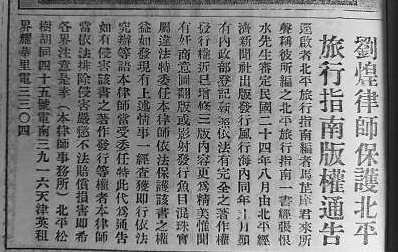 劉煌律師保護北平
旅行指南版權通告
逕啟者北平旅行指南編者馬芷庠君來所
聲稱彼所編之北平旅行指南一書經張恨
水先生審定民國二十四年八月由北平經
濟新聞社出版發行風行海內同年十月頒
有內政部登記執照依法有完全之著作權
發行權近已增修三版內容更為精美惟聞
有奸商意圖翻版或影射發行魚目混珠實
屬違法特委任本律師依法保護該書之權
益如發現有上述情事一經查獲即行依法
究辦等語本律師當受委任特此代為通告
如有侵害該書之著作發行等權者本律師
當依法排除侵害嚴懲不法賠償損害即希
各界注意是幸（本律師事務所）北平松
樹胡同四十五號電南三九一六天津英租
界耀華里電三三〇四